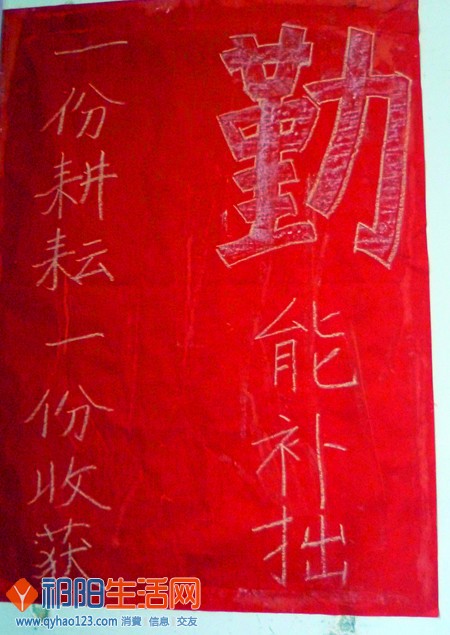 勤能补拙
一份耕耘一份收获
祁阳生活网
www.qyhao123.com 消費 信息 交友